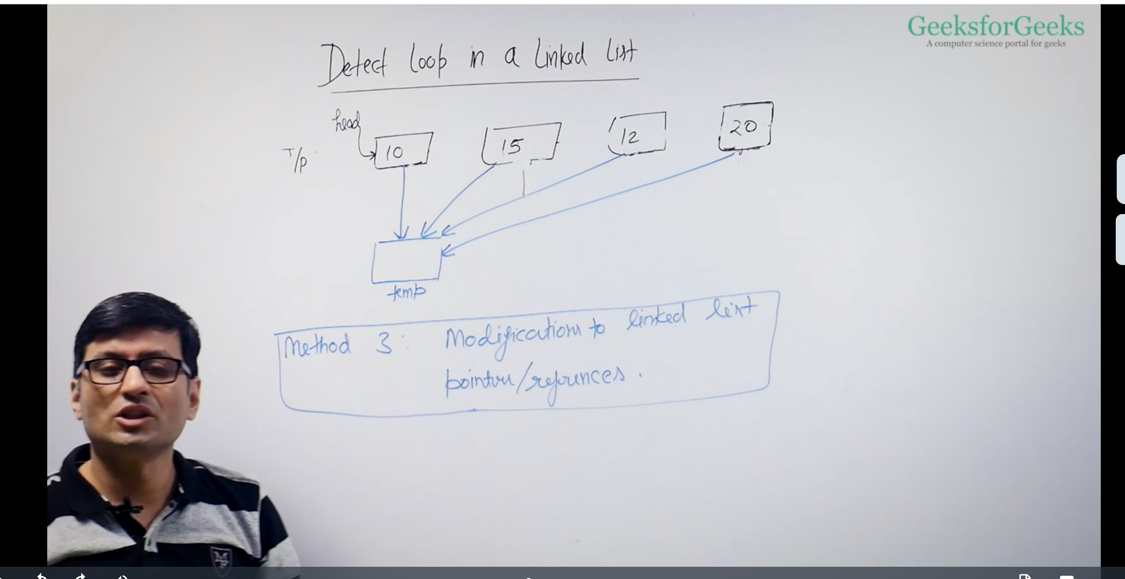 GeeksforGeeks
A computer science portal for geeks
Detect loop in a linked list
head
I/p
10
15
12
20
temp
Method 3: Modifications to linked list
pointers/references.